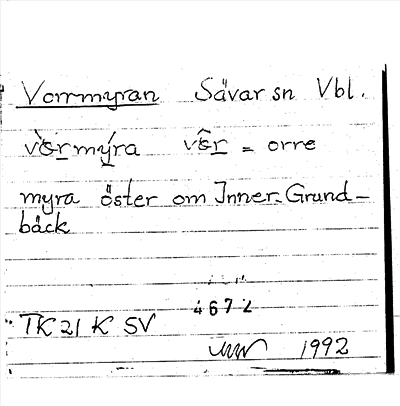 Vorrmyran Sävar sn Vbl.
vò̀rmýra vôr = orre
myra öster om Inner-Grund-
bäck
4672
TK 21 K SV
1992